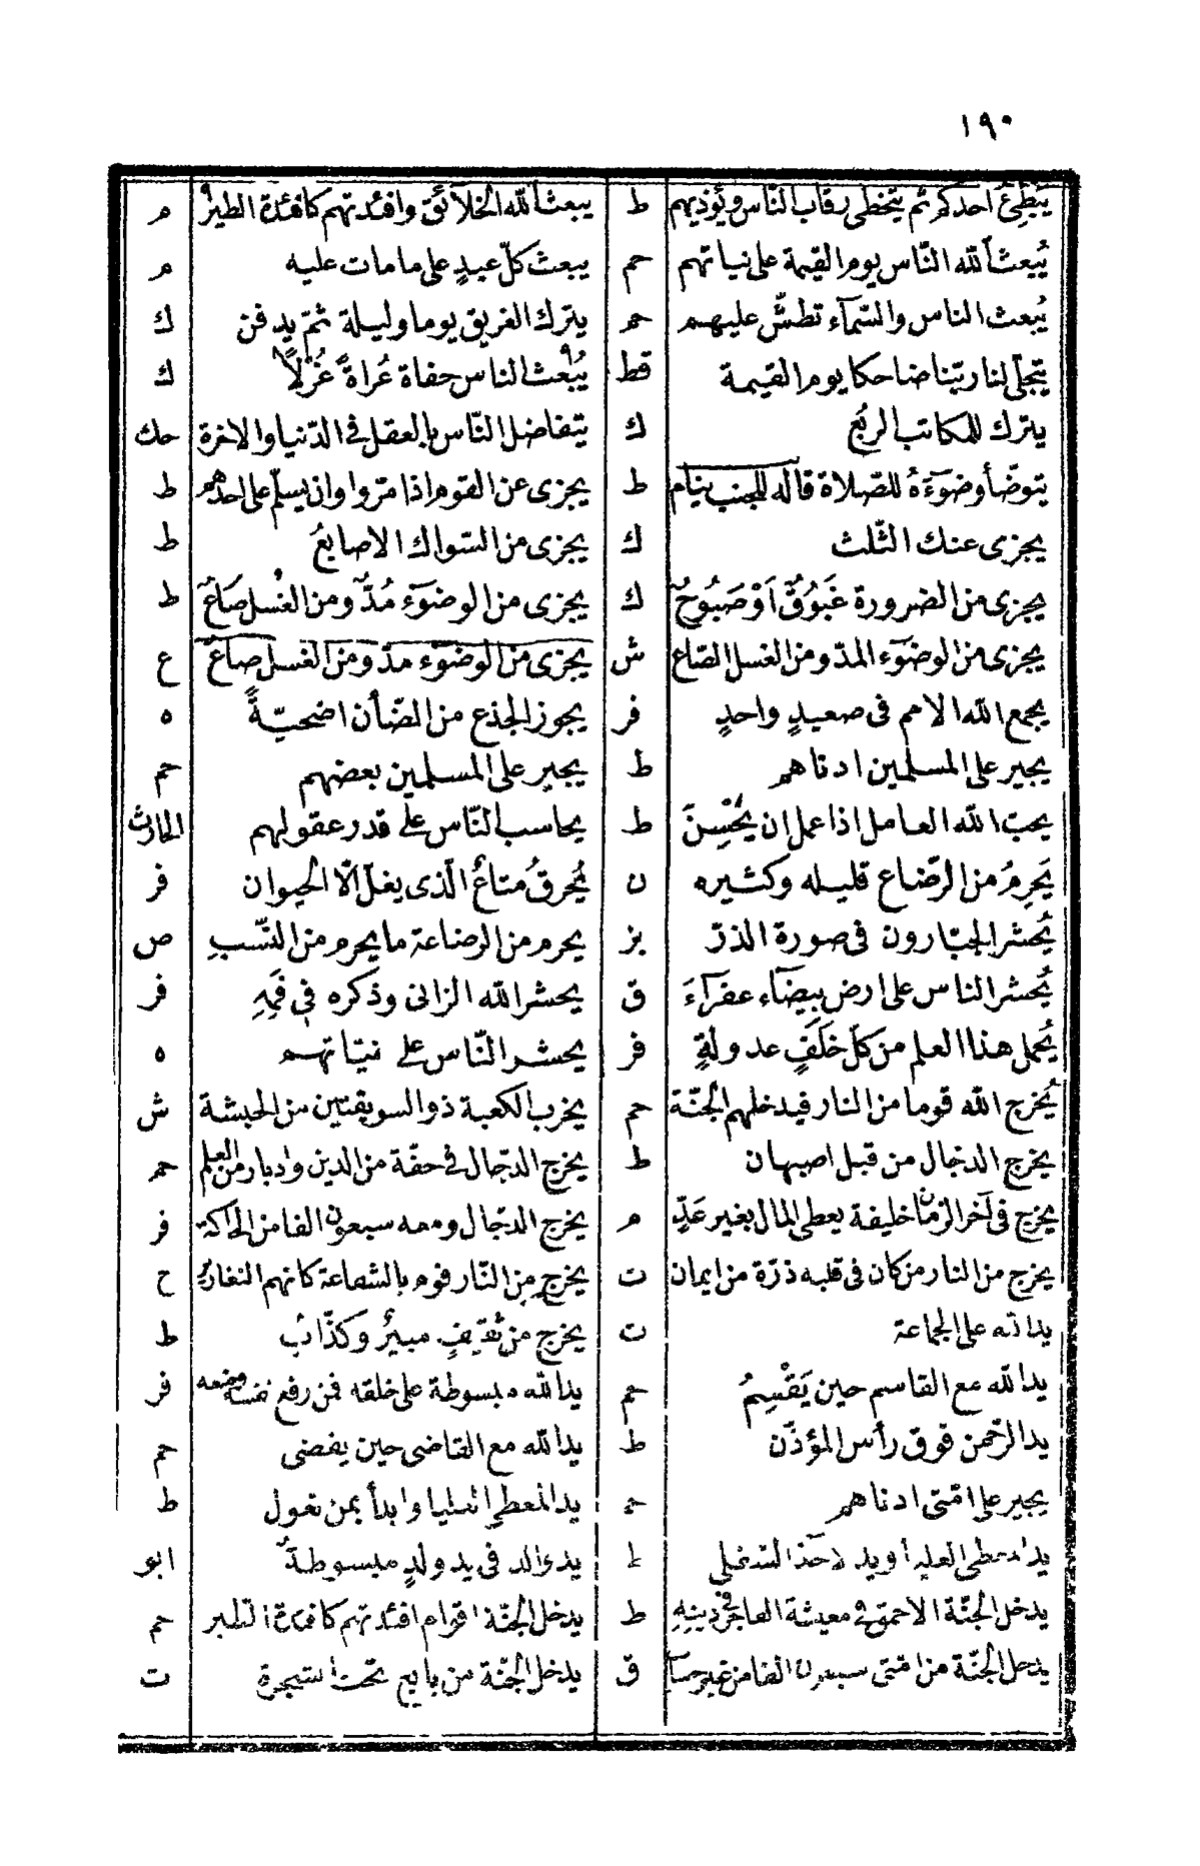 ١٩٠
يبطئ احدكم ثم يتخطى رقاب الناس ويؤذيهم ط يبعث الله الخلائق وافئدتهم كافئدة الطير م
يُبعث الله النّاس يوم القيمة على نياتهم حم يبعث كلّ عبدٍ على ما مات عليه م
يُبعث الناس والسّمآء تطشّ عليهم حم يترك الغريق يوما وليلة ثمّ يدفن ك
يتجلّى لنا ربّنا ضاحكا يوم القيمة قط يُبْعَث الناس حفاة عُراةً غُرْلًا ك
يترك للمكاتب الربُع ك يتفاضل النّاس بالعقل فى الدّنيا والاخرة حك
يتوضّأ وضوَءَهُ للصّلاة قاله للجنب ينام ط يجزى عن القوم اذا مرّوا وان يسلّم على احدهم ط
يجزى عنك الثّلث ك يجزى من السّواك الاصابعُ ط
يجزى من الضرورة غَبُوُقٌ اَوْ صَبُوُحٌ ك يجزى من الوضوَء مُدٌّ ومن الغُسل صَاعٌ ط
يجزى من الوضوَء المدّ ومن الغسل الصّاع ش يجزى من الوضوَء مدّ ومن الغسل صاعٌ ع
يجمع الله الامم فى صعيدٍ واحدٍ فر يجوز الجذع من الضّأن اضحيّةً ه
يجير على المسلمين ادناهم ط يجير على المسلمين بعضهم حم
يحبّ الله العامل اذا عمل ان يُحْسِنَ ط يحاسب النّاس على قدر عقولهم الحارث
يَحرِمُ من الرّضاع قليله وكثيره ن يُحرقُ متاعُ الّذى يغلّ الّا الحيوان فر
يُحشر الجبّارون فى صورة الذرّ بز يحرم من الرضاعة ما يحرم من النّسبِ ص
يُحشر الناس على ارض بيضَاء عفرَآءَ ق يحشر الله الزانى وذكره فى فَمِهِ فر
يُحمل هذا العلم من كلّ خَلَفٍ عدولُهٍ فر يحشر النّاس على نيّاتهم ه
يُخرج الله قوما من النار فيدخلهم الجنّة حم يخرب الكعبة ذو السويقتين من الحبشة ش
يخرج الدجال من قبل اصبهان ط يخرج الدجّال فى خفّة من الدين وادبار من العلم حم
يخرج فى آخر الزمان خليفة يعطى المال بغير عَدٍّ م يخرج الدجّال ومعه سبعون الفا من الحاكة فر
يخرج من النار من كان فى قلبه ذرّة من ايمان ت يخرج من النّار قوم بالشفاعة كانهم الثغارير خ
يد الله على الجماعة ت يخرج من ثقيفٍ مبيرٌ وكذّابٌ ط
يد الله مع القاسم حين يَقْسِمُ حم يد الله مبسوطة على خلقه فمن رفع نفسه وضعه فر
يد الرّحمن فوق رأس المؤذّن ط يد الله مع القاضى حين يقضى حم
يجير على امّتى ادناهم حم يد المعطى العليا وابدأ بمن تعول ط
يد المعطى العليا ويد الآخذ السّفلى ط يد الوالد فى يد ولدٍ مبسوطةٌ ابو
يدخل الجنّة الاحمق فى معيشة العاجز فى دينِهِ ط يدخل الجنّة اقوام افئدتهم كافئدة الطير حم
يدخل الجنّة من امّتى سبعون الفا من غير حساب ق يدخل الجنّة من بايع تحت الشجرة ت